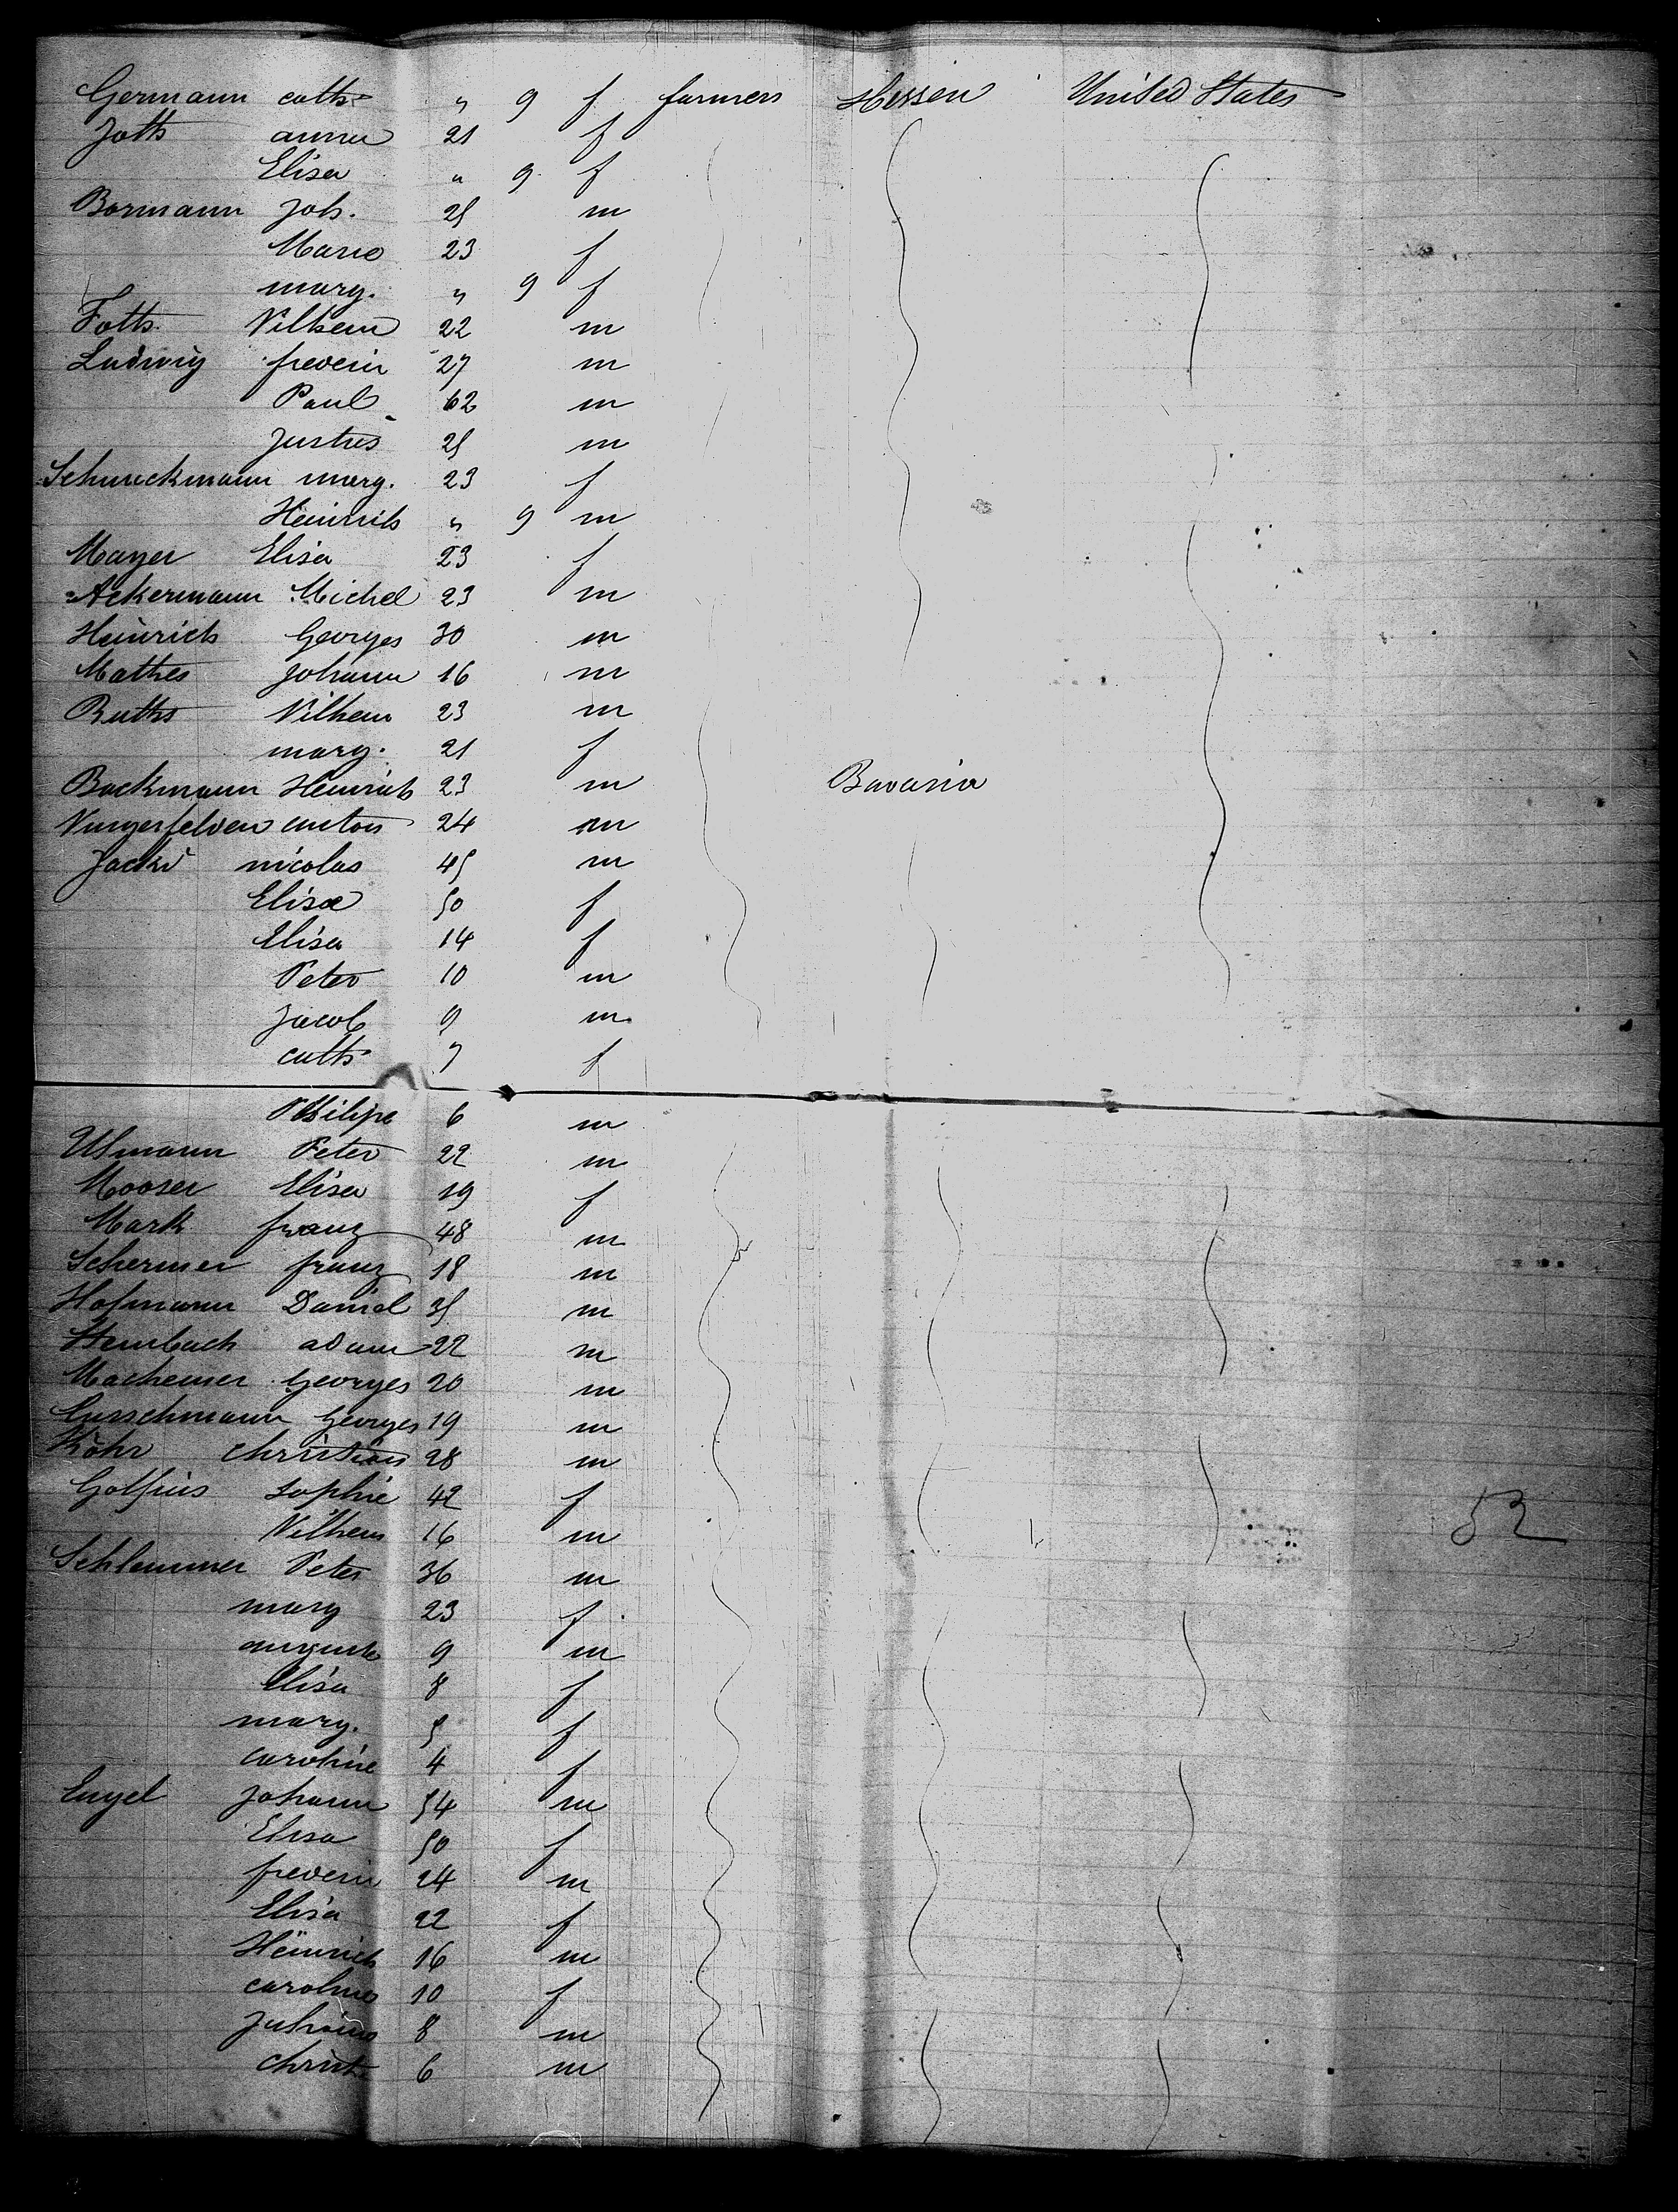 Germann cath. " 9 f farmers Hessen United States
Joth anna 21 f
Elisa " 9 f
Bormann Joh. 25 m
Marie 23 f
marg. " 9 f
Foth Vilhem 22 m
Ludwig frederic 27 m
Paul 62 m
Justus 25 m
Schmuckmann marg. 23 f
Heinrich " 9 m
Mayer Elisa 23 f
Ackermann Michel 23 m
Heinrich Georges 30 m
Mathes Johann 16 m
Ruths Vilhem 23 m
marg. 21 f
Backmann Heinrich 23 m Bavaria
anton 24 m
Jacki nicolas 45 m
Elisa 50 f
Elisa 14 f
Peter 10 m
Jacob 9 m
cath 7 f
Philipe 6 m
Ulmann Peter 22 m
Mooser Elisa 19 f
Mark franz 48 m
Schermer franz 18 m
Hofmann Daniel 35 m
Steinbach adam 22 m
Machemer Georges 20 m
Georges 19 m
Röhr christian 28 m
Golfius Sophie 42 f 52
Vilhem 16 m
Schlemmer Peter 36 m
marg 23 f
auguste 9 m
Elisa 8 f
marg. 5 f
caroline 4 f
Engel Johann 54 m
Elisa 50 f
frederic 24 m
Elisa 22 f
Heinrich 16 m
caroline 10 f
Julius 8 m
christ 6 m